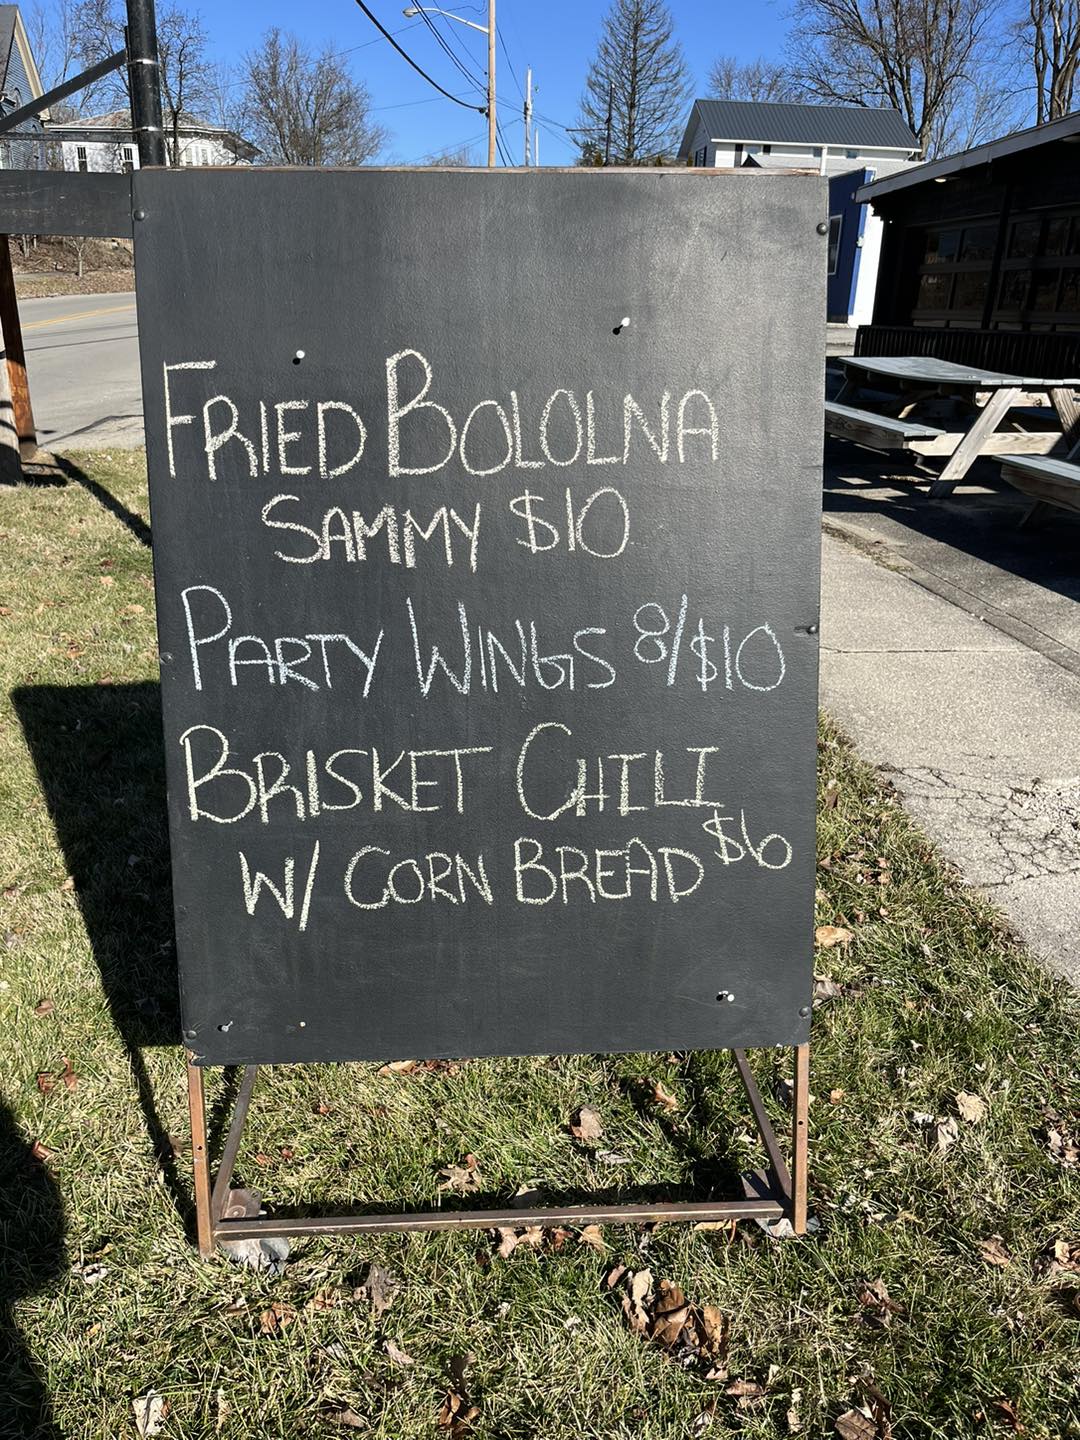 FRIED BOLOLNA
SAMMY $10
PARTY WINGS 8/$10
BRISKET CHILI
W/ CORN BREAD $6